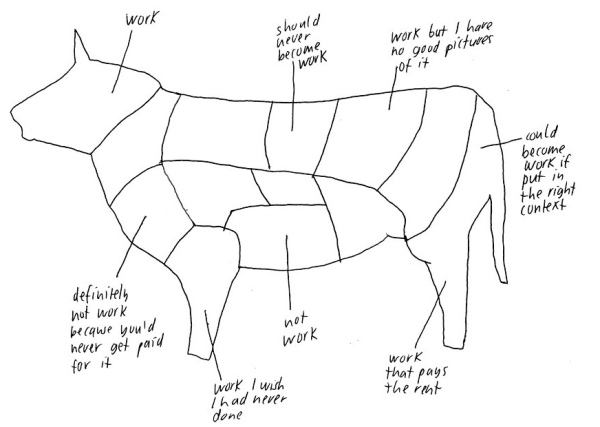 work
should
never
become
work
work but I have
no good pictures
of it
could
become
work if
put in
the right
context
definitely
not work
because you'd
never get paid
for it
not
work
work
that pays
the rent
work I wish
I had never
done